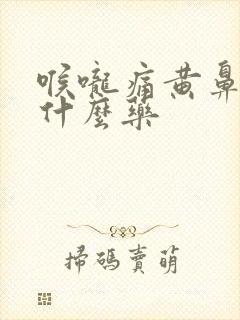 喉嚨痛黄鼻
什麼藥
掃碼賣萌